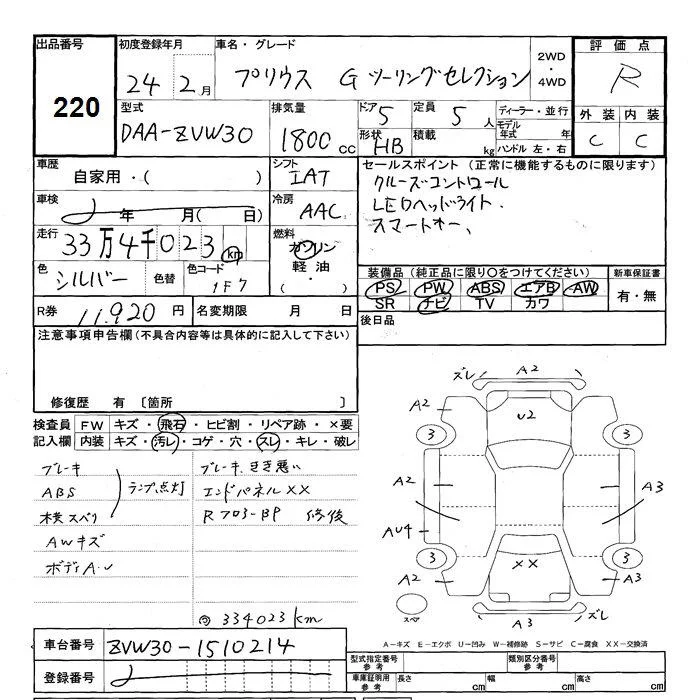 出品番号 初度登録年月 車名・グレード 2WD・4WD 評価点
220 24 2月 プリウス G ツーリングセレクション R
型式 排気量 ドア 5 定員 5人 ディーラー・並行 外装 内装
DAA-ZVW30 1800cc 形状 HB 積載 kg モデル年式 年 C C
ハンドル 左・右
車歴 シフト セールスポイント (正常に機能するものに限ります)
自家用・( ) IAT クルーズコントロール
車検 年 月( 日) 冷房 AAC LEDヘッドライト、
スマートオー、
走行 33万4千023km 燃料 ガソリン・軽油・( )
色 シルバー 色替 色コード 1F7 装備品 (純正品に限り○をつけてください) 新車保証書
PS PW ABS エアB AW 有・無
SR ナビ TV カワ
R券 11,920円 名変期限 月 日 後日品
注意事項申告欄(不具合内容等は具体的に記入して下さい)
修復歴 有 〔箇所
検査員 FW キズ・飛石・ヒビ割・リペア跡・×要
記入欄 内装 キズ・汚レ・コゲ・穴・スレ・キレ・破レ
ブレーキ ブレーキ、きき悪い
ABS ランプ点灯 エンドパネル XX
横スベリ R フロアーBP 修復
AWキズ
ボディA・U
334023km
ズレ A2
A2 U2 A2
3 3
A2 A3
AU4
3 XX 3
A2 A3
スペア A3 ズレ
A-キズ E-エクボ U-凹み W-補修跡 S-サビ C-腐食 XX-交換済
車台番号 ZVW30-1510214
型式指定番号 参考 類別区分番号 参考
登録番号 車庫証明用 参考 長さ cm 幅 cm 高さ cm